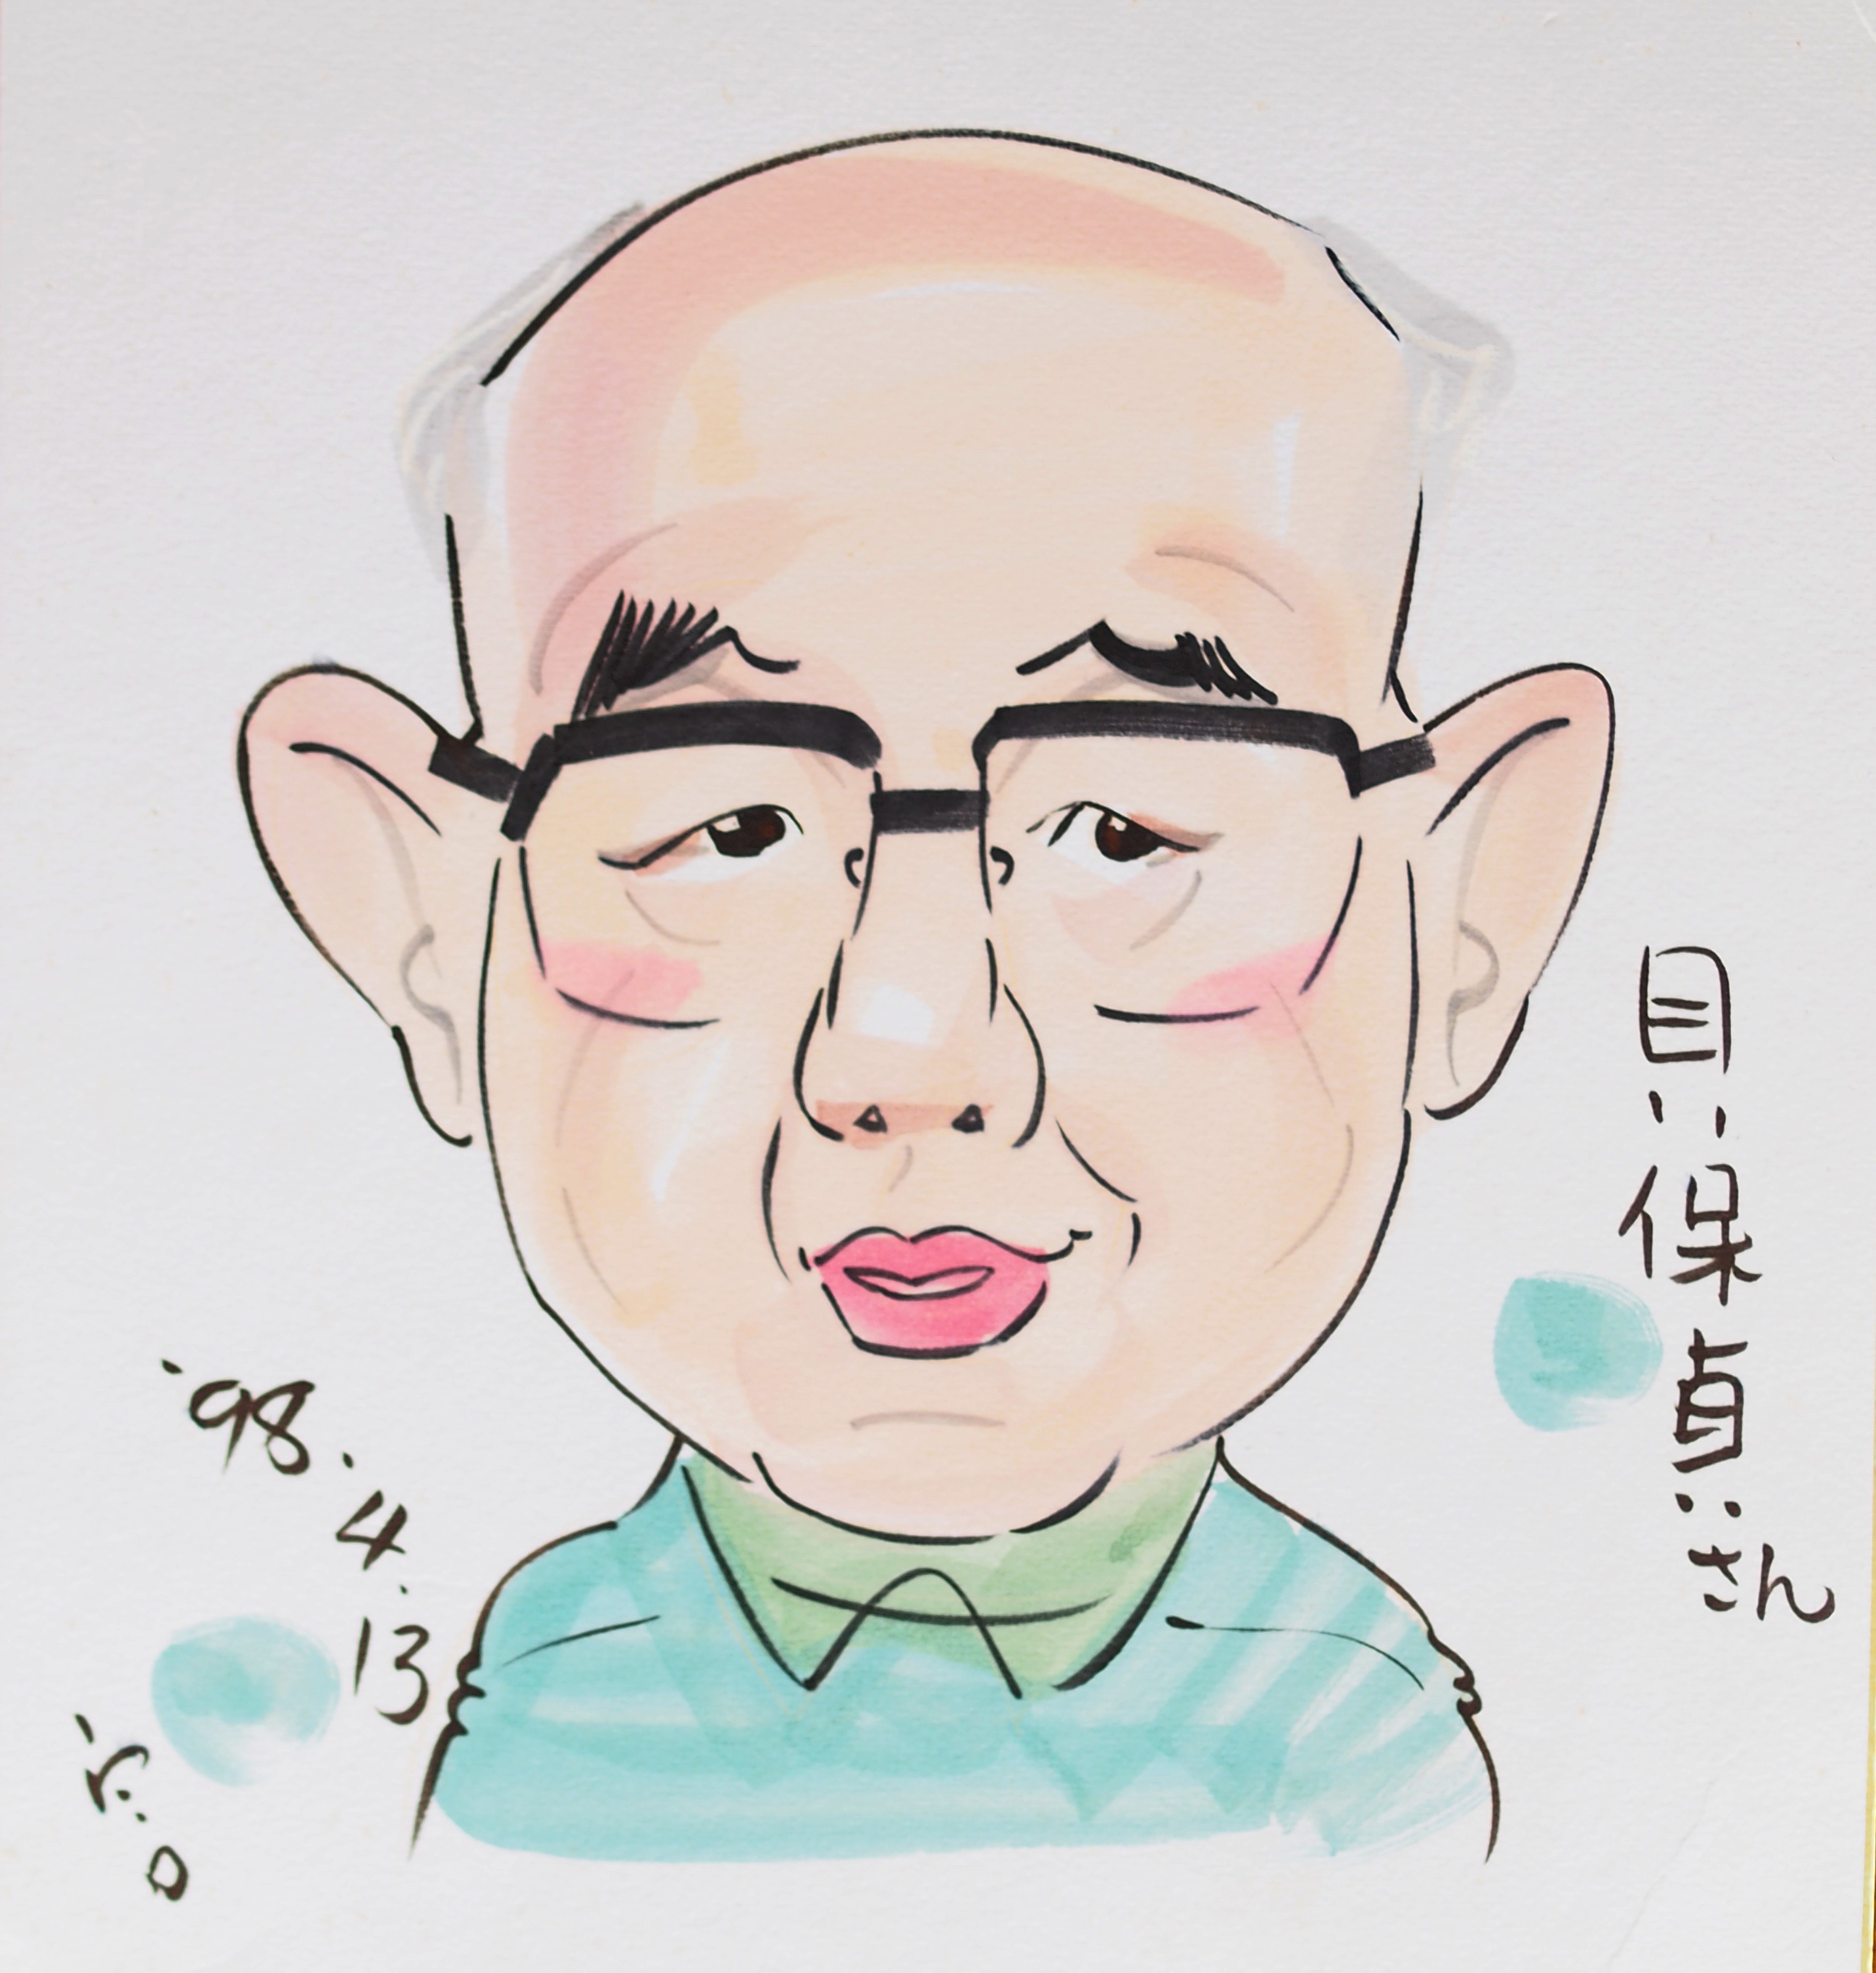 貝保貞さん
'98.4.13